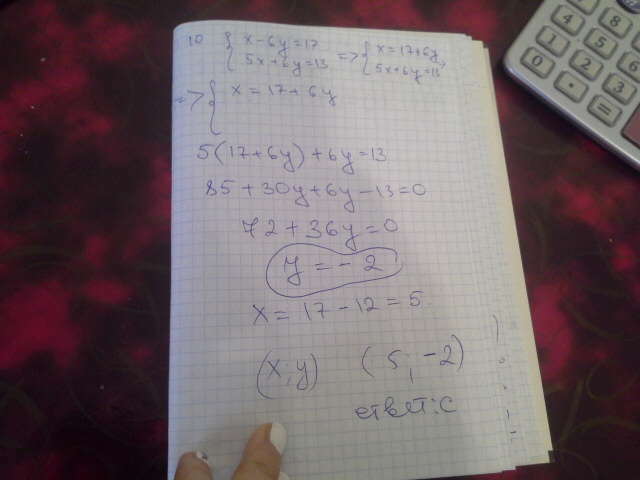 10 { x-6y=17 => { x=17+6y,
5x+6y=13 5x+6y=13
=> { x=17+6y
5(17+6y)+6y=13
85+30y+6y-13=0
72+36y=0
y=-2
x=17-12=5
(x,y) (5;-2)
ответ: С
7
8
4
5
6
1
2
3
0
.
=